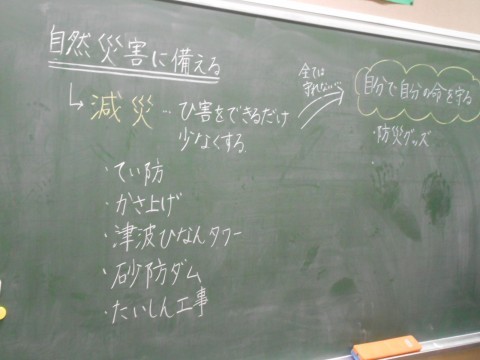 自然災害に備える
↳減災…ひ害をできるだけ
少なくする
・てい防
・かさ上げ
・津波ひなんタワー
・砂防ダム
・たいしん工事
全ては
守れない…
自分で自分の命を守る
・防災グッズ
・